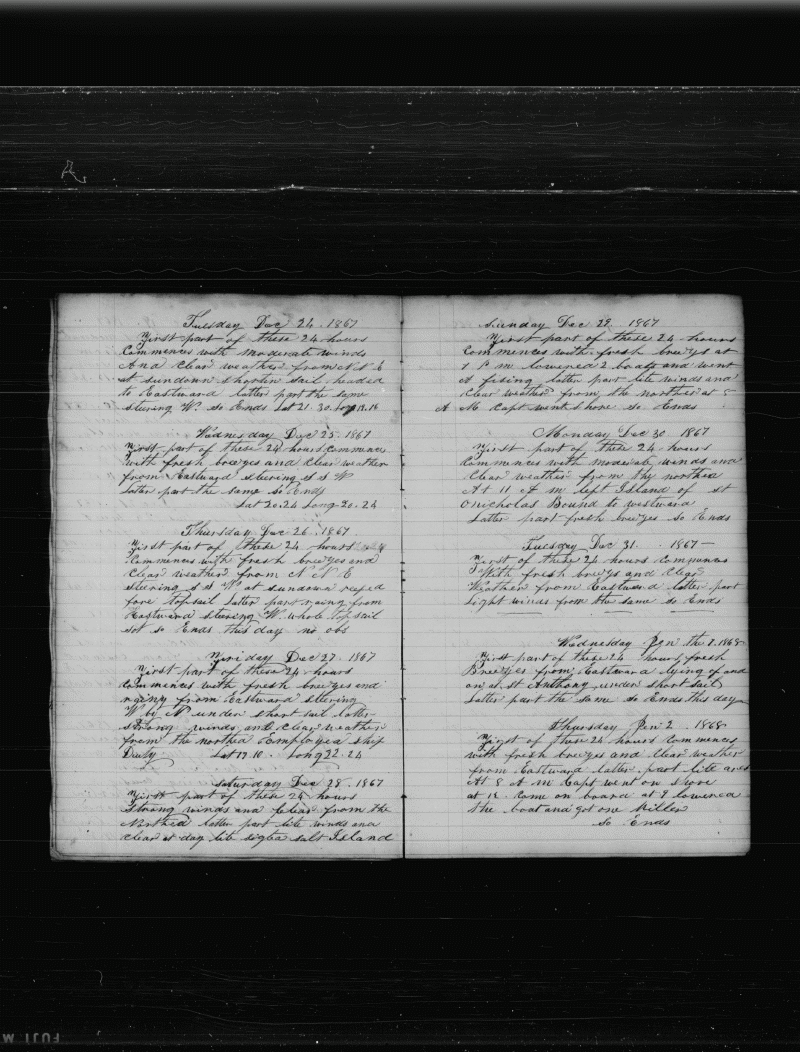 Tuesday Dec 24. 1867
First part of these 24 hours
Commences with moderate winds
And clear weather from N E
at sundown shorten sail headed
to Eastward latter part the same
steering W. so Ends Lat 21.30. Long 18.18
Wednesday Dec 25. 1867
First part of these 24 hours Commences
with fresh breezes and clear weather
from Eastward steering S S W
latter part the same so Ends
Lat 20.24 Long 20.24
Thursday Dec 26. 1867
First part of these 24 hours
Commences with fresh breezes and
clear weather from N N E
steering S S W at sundown reefed
fore topsail latter part
Eastward steering W. whole topsail
set so Ends this day no obs
Friday Dec 27. 1867
First part of these 24 hours
commences with fresh breezes and
from Eastward steering
W by N under short sail latter
strong winds and clear weather
from the northed Employed ship
Duty Lat 19.10. Long 22.24
Saturday Dec 28. 1867
First part of these 24 hours
Strong winds and clear from the
Northed latter part lite winds and
clear at day lite salt Island
Sunday Dec 29. 1867
First part of these 24 hours
Commences with fresh breezys at
1 P m lowered 2 boats and went
A fising latter part lite winds and
clear weather from the northed at 8
A M Capt went shore so Ends
Monday Dec 30 1867
First part of these 24 hours
Commences with moderate winds and
Clear weather from thy northed
At 11 A m left Island of st
nicholas Bound to westward
Latter part fresh breezes so Ends
Tuesday Dec 31. 1867
First of these 24 hours Commences
With fresh breezys and clear
Weather from Eastward latter part
Light winds from the same so Ends
Wednesday Jan the 1. 1868
First part of these 24 hours fresh
Breezes from Eastward lying of and
on at st Anthony under short sail
Latter part the same so Ends this day
Thursday Jan 2. 1868
First of these 24 hours Commences
with fresh breezes and clear weather
from Eastward latter part lite
At 8 A M Capt went on shore
at 12 Came on board at 9 lowered
the boat and got one killer
so Ends
FUJI M